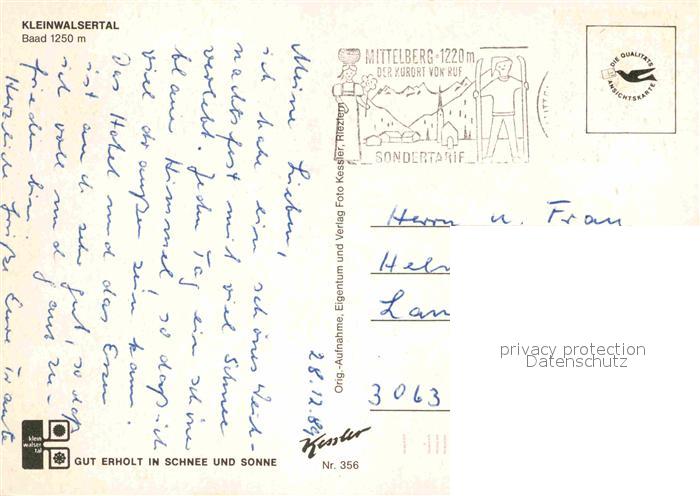 KLEINWALSERTAL
Baad 1250 m
28.12.89
Meine Lieben,
ich habe ein schönes Weih-
nachtsfest mit viel Schnee
verlebt. Jeden Tag ein schöner
blauer Himmel, so daß ich
viel draußen sein kann.
Das Hotel und das Essen
ist auch sehr gut, so daß
ich voll und ganz zu-
frieden bin.
Herzliche Grüße Eure Traute
klein
walser
tal
GUT ERHOLT IN SCHNEE UND SONNE
Orig.-Aufnahme, Eigentum und Verlag Foto Kessler, Riezlern
Kessler
Nr. 356
MITTELBERG • 1220 m
DER KURORT VON RUF
SONDERTARIF
DIE QUALITÄTS
ANSICHTSKARTE
Herrn u. Frau
Hel
Lan
3063
privacy protection
Datenschutz